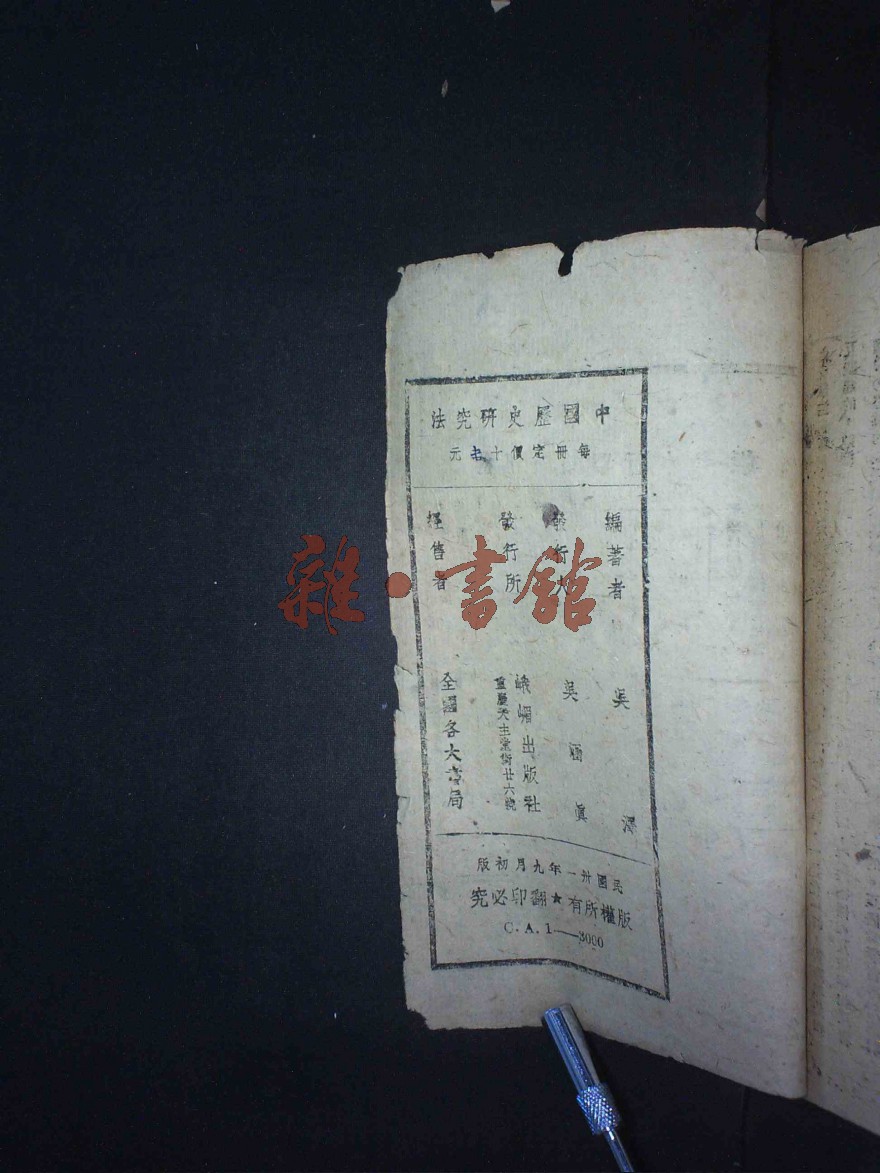 中國歷史研究法
每冊定價十七元
編著者 吳澤
發行人 吳涵眞
發行所 峨嵋出版社
重慶天主堂街廿六號
經售者 全國各大書局
民國卅一年九月初版
版權所有★翻印必究
C.A.1—3000
雜·書館